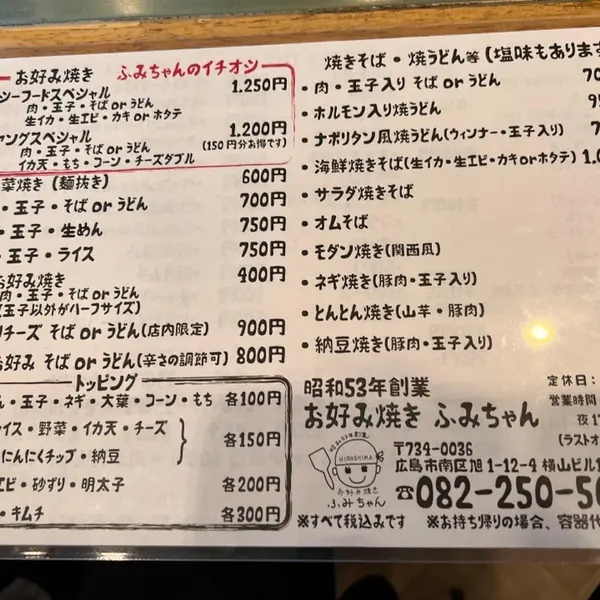 お好み焼き ふみちゃんのイチオシ
シーフードスペシャル 1,250円
肉・玉子・そばorうどん
生イカ・生エビ・カキorホタテ
ヤングスペシャル 1,200円
肉・玉子・そばorうどん (150円分お得です)
イカ天・もち・コーン・チーズダブル
菜焼き(麺抜き) 600円
・玉子・そばorうどん 700円
・玉子・生めん 750円
・玉子・ライス 750円
お好み焼き 400円
肉・玉子・そばorうどん
(玉子以外がハーフサイズ)
チーズ そばorうどん(店内限定) 900円
お好み そばorうどん(辛さの調節可) 800円
トッピング
・玉子・ネギ・大葉・コーン・もち 各100円
イス・野菜・イカ天・チーズ
にんにくチップ・納豆 各150円
エビ・砂ずり・明太子 各200円
・キムチ 各300円
焼きそば・焼うどん等(塩味もあります
・肉・玉子入り そばorうどん
・ホルモン入り焼うどん
・ナポリタン風焼うどん(ウィンナー・玉子入り)
・海鮮焼きそば(生イカ・生エビ・カキorホタテ)
・サラダ焼きそば
・オムそば
・モダン焼き(関西風)
・ネギ焼き(豚肉・玉子入り)
・とんとん焼き(山芋・豚肉)
・納豆焼き(豚肉・玉子入り)
昭和53年創業
お好み焼き ふみちゃん
定休日:
営業時間
夜
(ラストオ
昭和53年創業
HIROSHIMA
お好み焼き
ふみちゃん
〒734-0036
広島市南区旭1-12-4 横山ビル
☎082-250-5
※すべて税込みです ※お持ち帰りの場合、容器代